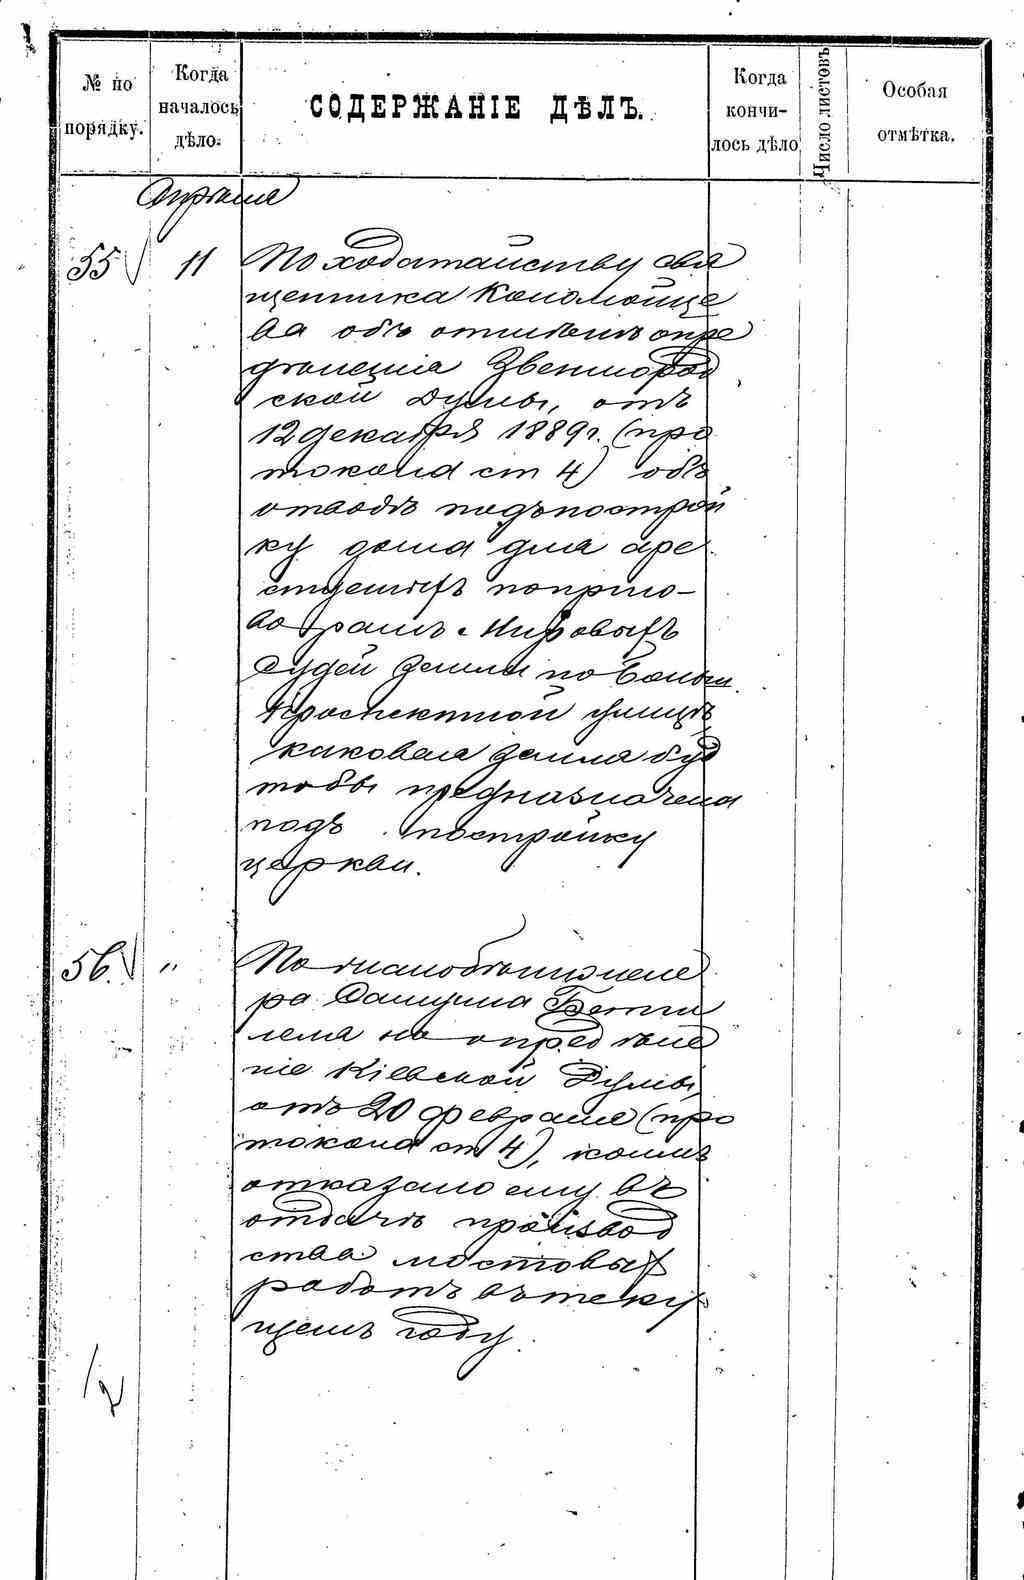 № по порядку.
Когда началось дѣло.
СОДЕРЖАНІЕ ДѢЛЪ.
Когда кончилось дѣло
Число листовъ
Особая отмѣтка.
Апрѣля
55 11 По ходатайству свя
щенника Коломойце
ва объ отмѣнѣ опре
дѣленія Звенигород
ской Думы, отъ
12 декабря 1889 г. (про
токола ст 4) объ
отводѣ подъ построй
ку дома для аре
стуемыхъ по приго-
ворамъ Мировыхъ
Судей земли по Больш.
Проспектной улицѣ,
каковая земля буд
то бы предназначена
подъ постройку
церкви.
56. " По жалобѣ инжене
ра Самуила
на опредѣле
ніе Кіевской Думы,
отъ 20 февраля (про
токола ст 4), коимъ
отказано ему въ
отдачѣ производ
ства мостовыхъ
работъ въ теку
щемъ году.
1/2